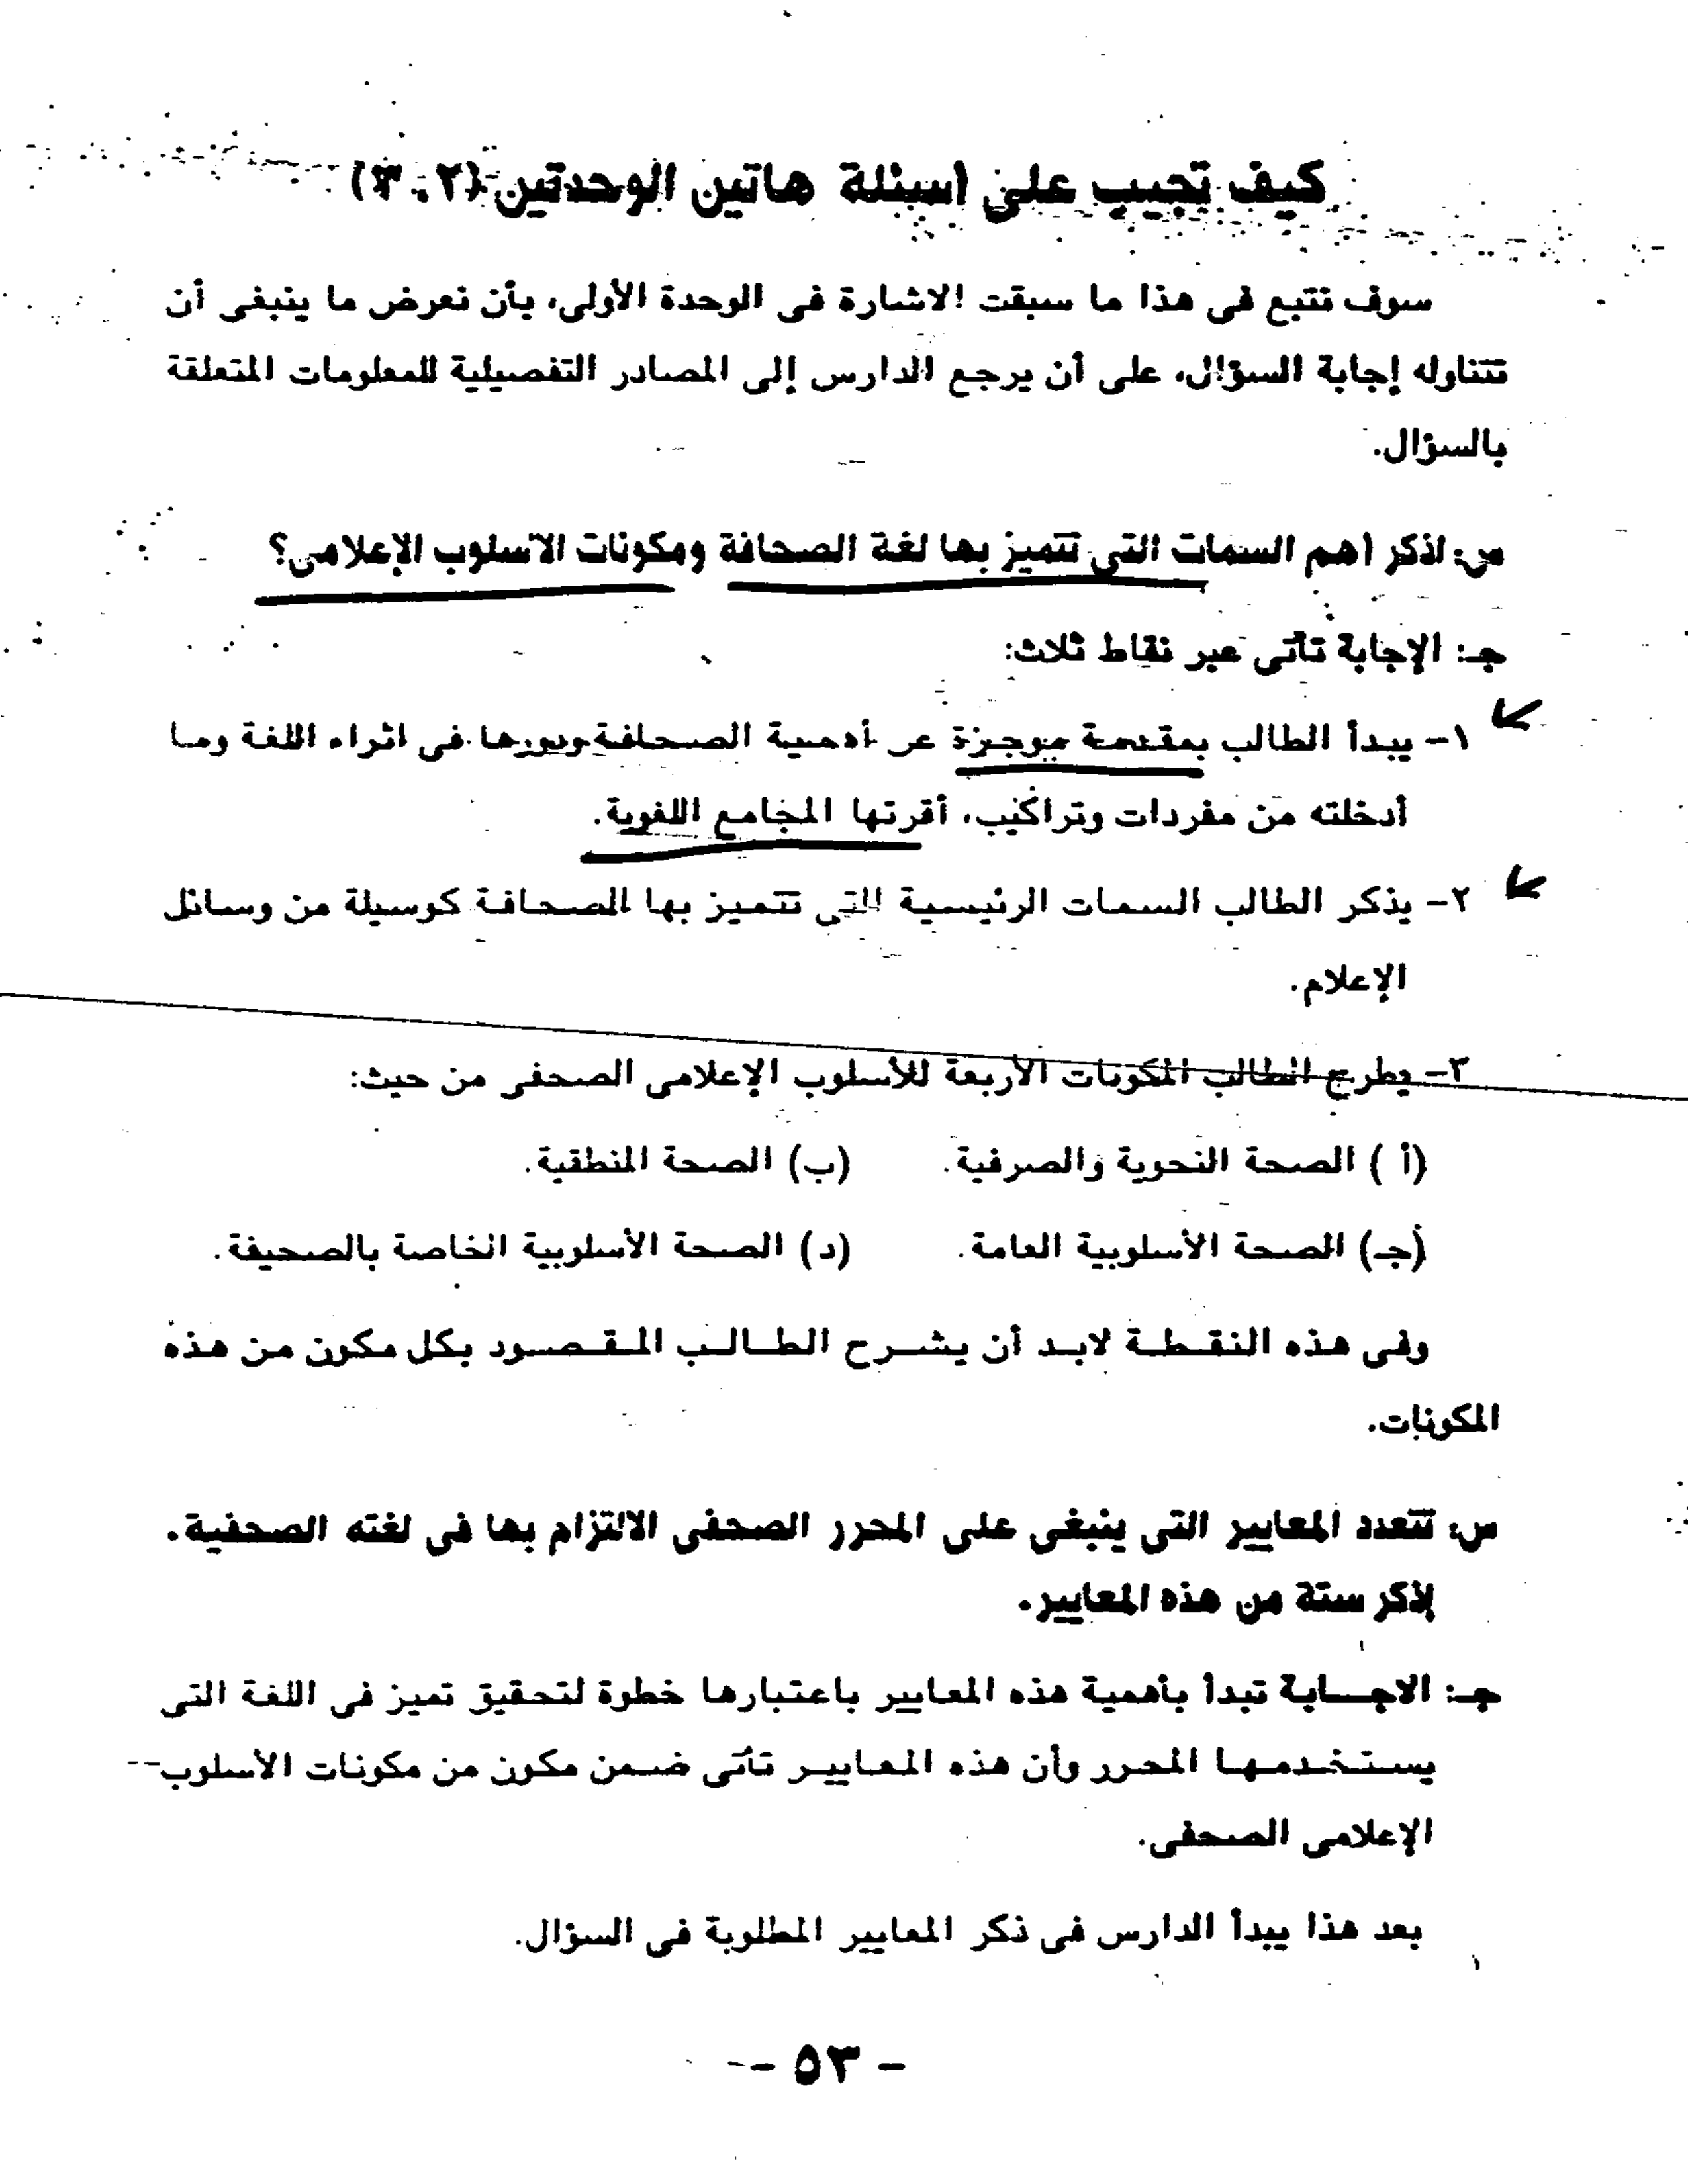 كيف تجيب على أسئلة هاتين الوحدتين (٢، ٣)
سوف نتبع فى هذا ما سبقت الاشارة فى الوحدة الأولى، بأن نعرض ما ينبغى أن
تتناوله إجابة السؤال، على أن يرجع الدارس إلى المصادر التفصيلية للمعلومات المتعلقة
بالسؤال.
س: اذكر أهم السمات التى تتميز بها لغة الصحافة ومكونات الأسلوب الإعلامى؟
جـ: الإجابة تأتى عبر نقاط ثلاث:
١- يبدأ الطالب بمقدمة موجزة عن أهمية الصحافة ودورها فى اثراء اللغة وما
أدخلته من مفردات وتراكيب، أقرتها المجامع اللغوية.
٢- يذكر الطالب السمات الرئيسية التى تتميز بها الصحافة كوسيلة من وسائل
الإعلام.
٣- يطرح الطالب المكونات الأربعة للأسلوب الإعلامى الصحفى من حيث:
(أ) الصحة النحوية والصرفية. (ب) الصحة المنطقية.
(جـ) الصحة الأسلوبية العامة. (د) الصحة الأسلوبية الخاصة بالصحيفة.
وفى هذه النقطة لابد أن يشرح الطالب المقصود بكل مكون من هذه
المكونات.
س: تتعدد المعايير التى ينبغى على المحرر الصحفى الالتزام بها فى لغته الصحفية.
إذكر ستة من هذه المعايير.
جـ: الاجابة تبدأ بأهمية هذه المعايير باعتبارها خطوة لتحقيق تميز فى اللغة التى
يستخدمها المحرر وأن هذه المعايير تأتى ضمن مكون من مكونات الأسلوب
الإعلامى الصحفى.
بعد هذا يبدأ الدارس فى ذكر المعايير المطلوبة فى السؤال.
- ٥٣ -